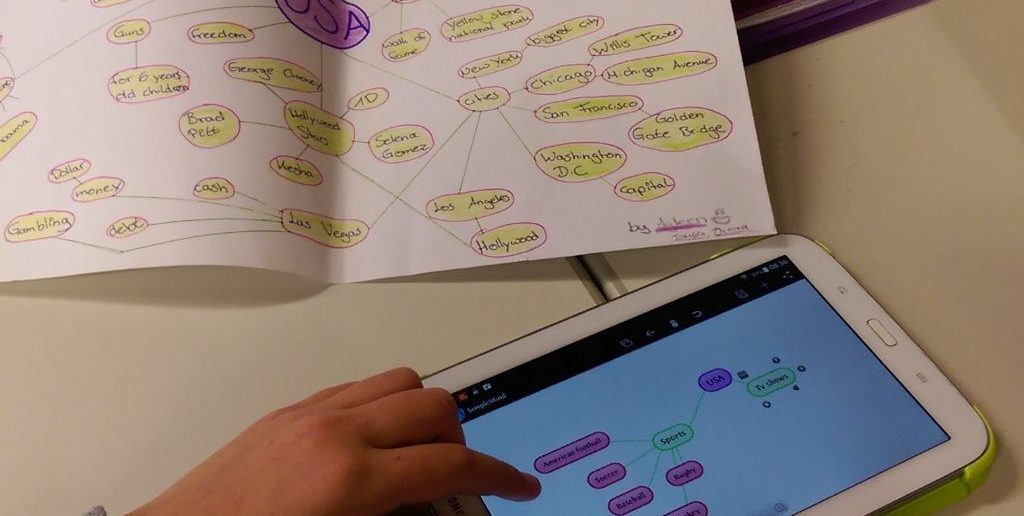 USA
Guns
Freedom
Wall of
Fame
Yellow stone
national park
biggest city
New York
Willis Tower
Chicago
Michigan Avenue
for 6 year
old children
George Clooney
1D
cities
San Francisco
Golden
Gate Bridge
Brad
Pitt
Hollywood
Stars
Selena
Gomez
Kesha
Washington
D.C
capital
Dollar
money
cash
Los Angeles
Gambling
debt
Las Vegas
Hollywood
by
08:36
SimpleMind
USA
Tv shows
Sports
American football
Soccer
Rugby
Baseball